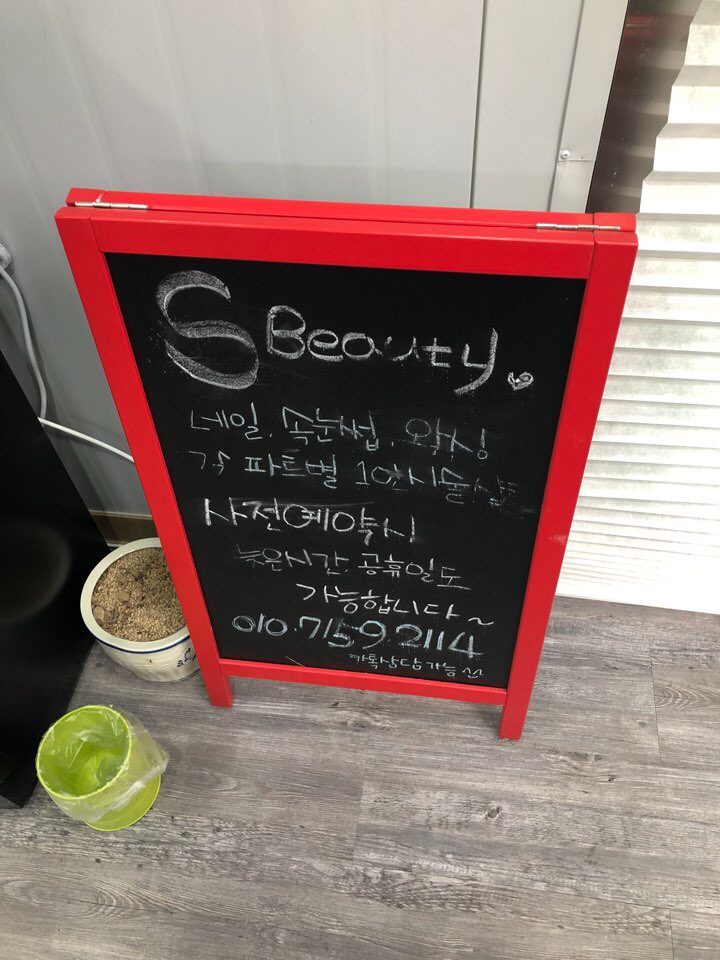 S Beauty.
네일. 속눈썹. 왁싱
각 파트별 1인시술샵
사전예약시
늦은시간 공휴일도
가능합니다~
010.7159.2114
카톡상담가능